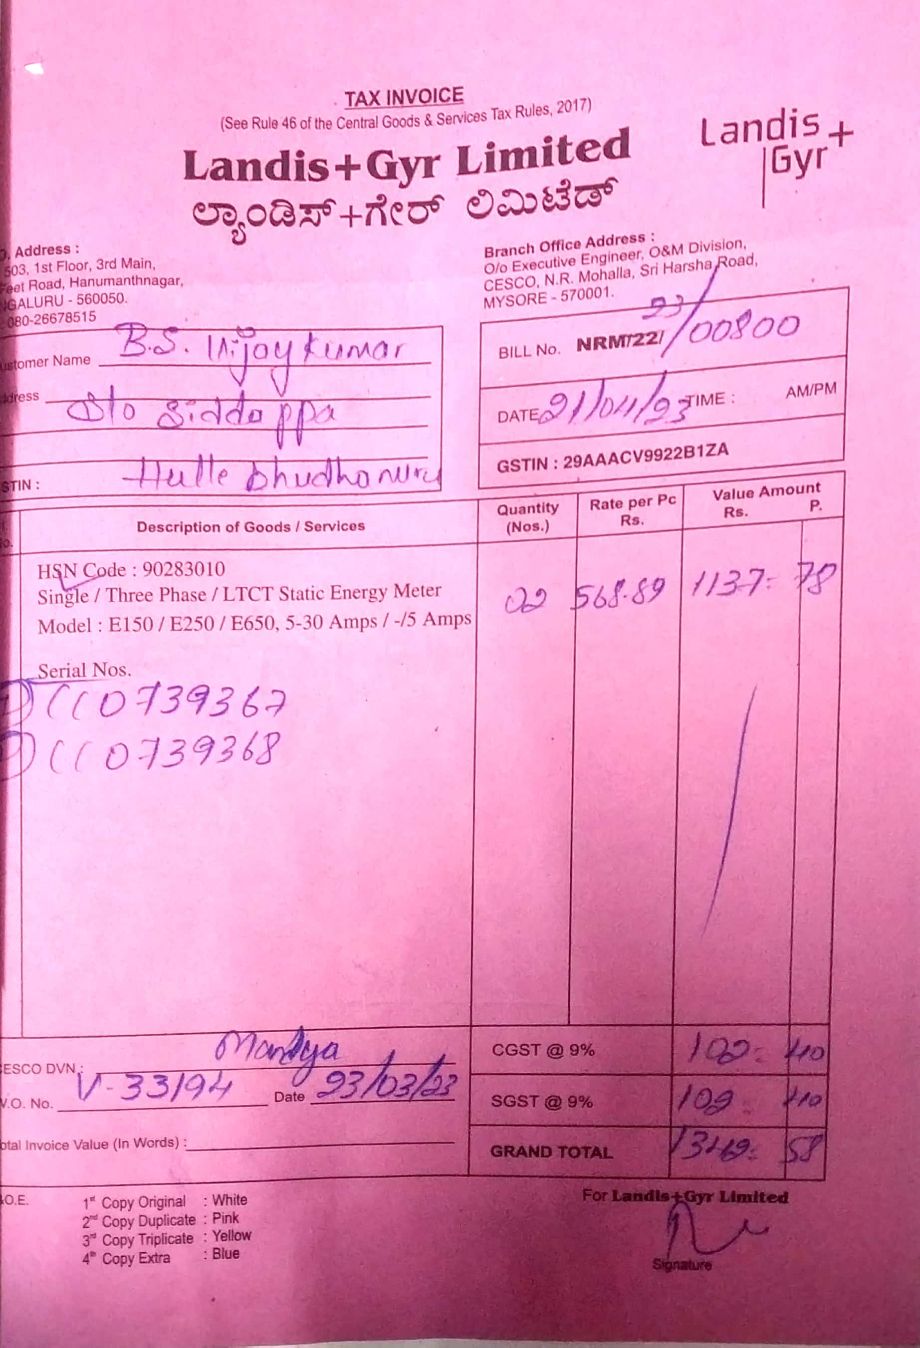 TAX INVOICE
(See Rule 46 of the Central Goods & Services Tax Rules, 2017)
Landis+Gyr Limited
ಲ್ಯಾಂಡಿಸ್+ಗೇರ್ ಲಿಮಿಟೆಡ್
Landis+
Gyr
Address :
503, 1st Floor, 3rd Main,
Road, Hanumanthnagar,
GALURU - 560050.
080-26678515
Branch Office Address :
O/o Executive Engineer, O&M Division,
CESCO, N.R. Mohalla, Sri Harsha Road,
MYSORE - 570001.
stomer Name B.S. Vijaykumar
dress S/o Siddappa
STIN : Hulle bhudhanuru
BILL No. NRM/22/23/00800
DATE 21/04/23 TIME : AM/PM
GSTIN : 29AAACV9922B1ZA
Description of Goods / Services Quantity (Nos.) Rate per Pc Rs. Value Amount Rs. P.
HSN Code : 90283010
Single / Three Phase / LTCT Static Energy Meter 02 568.89 1137= 78
Model : E150 / E250 / E650, 5-30 Amps / -/5 Amps
Serial Nos.
CC0739367
CC0739368
ESCO DVN.: Mandya
V.O. No. V-33194 Date 23/03/23
otal Invoice Value (In Words) :
CGST @ 9% 102= 40
SGST @ 9% 102 40
GRAND TOTAL 58
.O.E.
1st Copy Original : White
2nd Copy Duplicate : Pink
3rd Copy Triplicate : Yellow
4th Copy Extra : Blue
For Landis+Gyr Limited
Signature